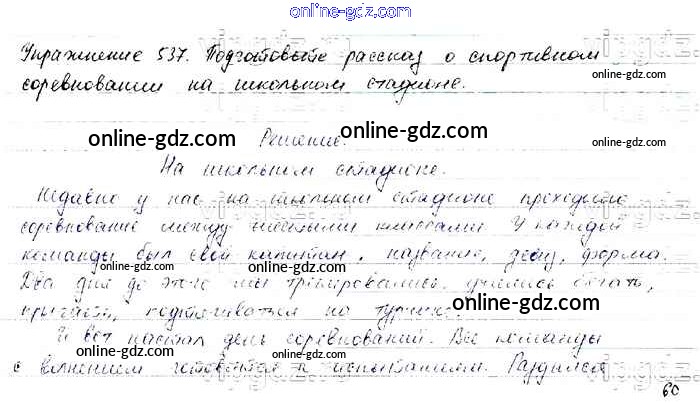 online-gdz.com
Упражнение 537. Подготовьте рассказ о спортивном
соревновании на школьном стадионе.
online-gdz.com
online-gdz.com
Решение.
На школьном стадионе.
Недавно у нас на школьном стадионе проходило
соревнование между шестыми классами. У каждой
online-gdz.com
команды был свой капитан, название, девиз, форма.
online-gdz.com
online-gdz.com
Два дня до этого мы тренировались, учились бегать,
прыгать, подтягиваться на турнике.
online-gdz.com
И вот настал день соревнований. Все команды
с волнением готовятся к испытаниям. Раздался
online-gdz.com
online-gdz.com
60